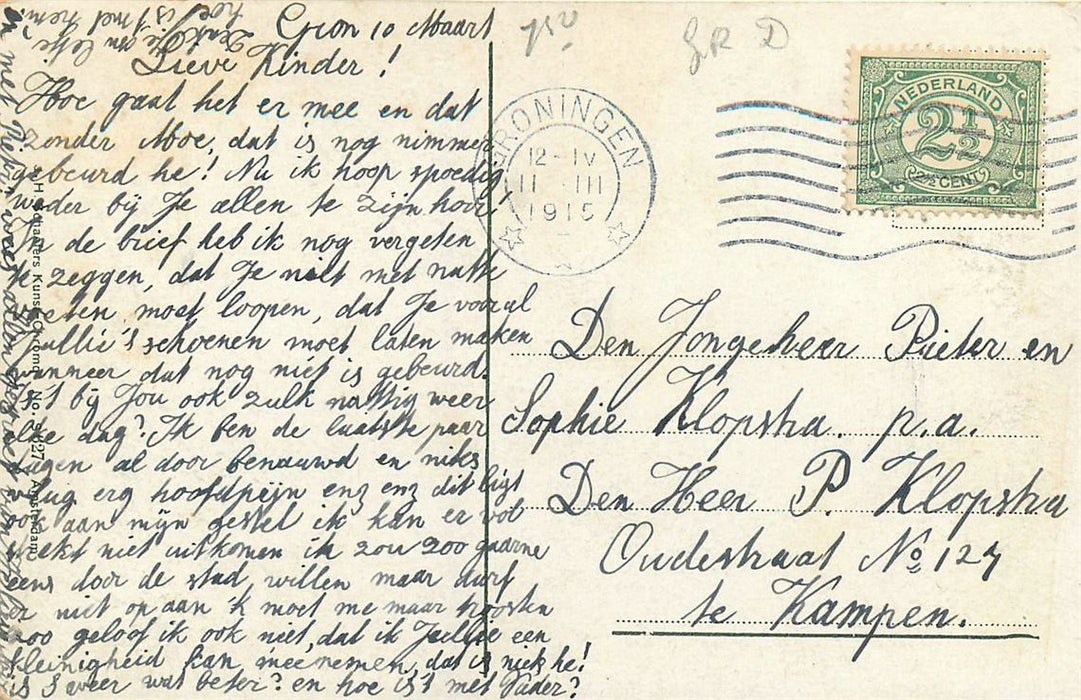 Gron 10 Maart
Lieve Kinder!
Hoe gaat het er mee en dat
zonder Moe, dat is nog nimmer
gebeurd he! Nu ik hoop spoedig
weder bij Je allen te zijn hoor
In de brief heb ik nog vergeten
te zeggen, dat Je niet met natte
voeten moet loopen, dat Je vooral
Jullie's schoenen moet laten maken
wanneer dat nog niet is gebeurd.
Is't bij Jou ook zulk nattig weer
elke dag? Ik ben de laatste paar
dagen al door benauwd en niks
vlug erg hoofdpijn enz enz dit ligt
ook aan mijn gestel ik kan er
niet uitkomen ik zou zoo gaarne
eens door de stad, willen maar durf
er niet op aan 'k moet me maar troosten
zoo geloof ik ook niet, dat ik Jullie een
kleinigheid kan meenemen, dat is niek he!
is S weer wat beter? en hoe is't met Vader?
hoe is't met
en met
Kunst Chromo. No. Amsterdam
750
GR D
GRONINGEN
12-IV
11 III
1915
NEDERLAND
2½
2½ CENT
Den Jongeheer Pieter en
Sophie Klopstra. p.a.
Den Heer P. Klopstra
Oudestraat No 127
te Kampen.